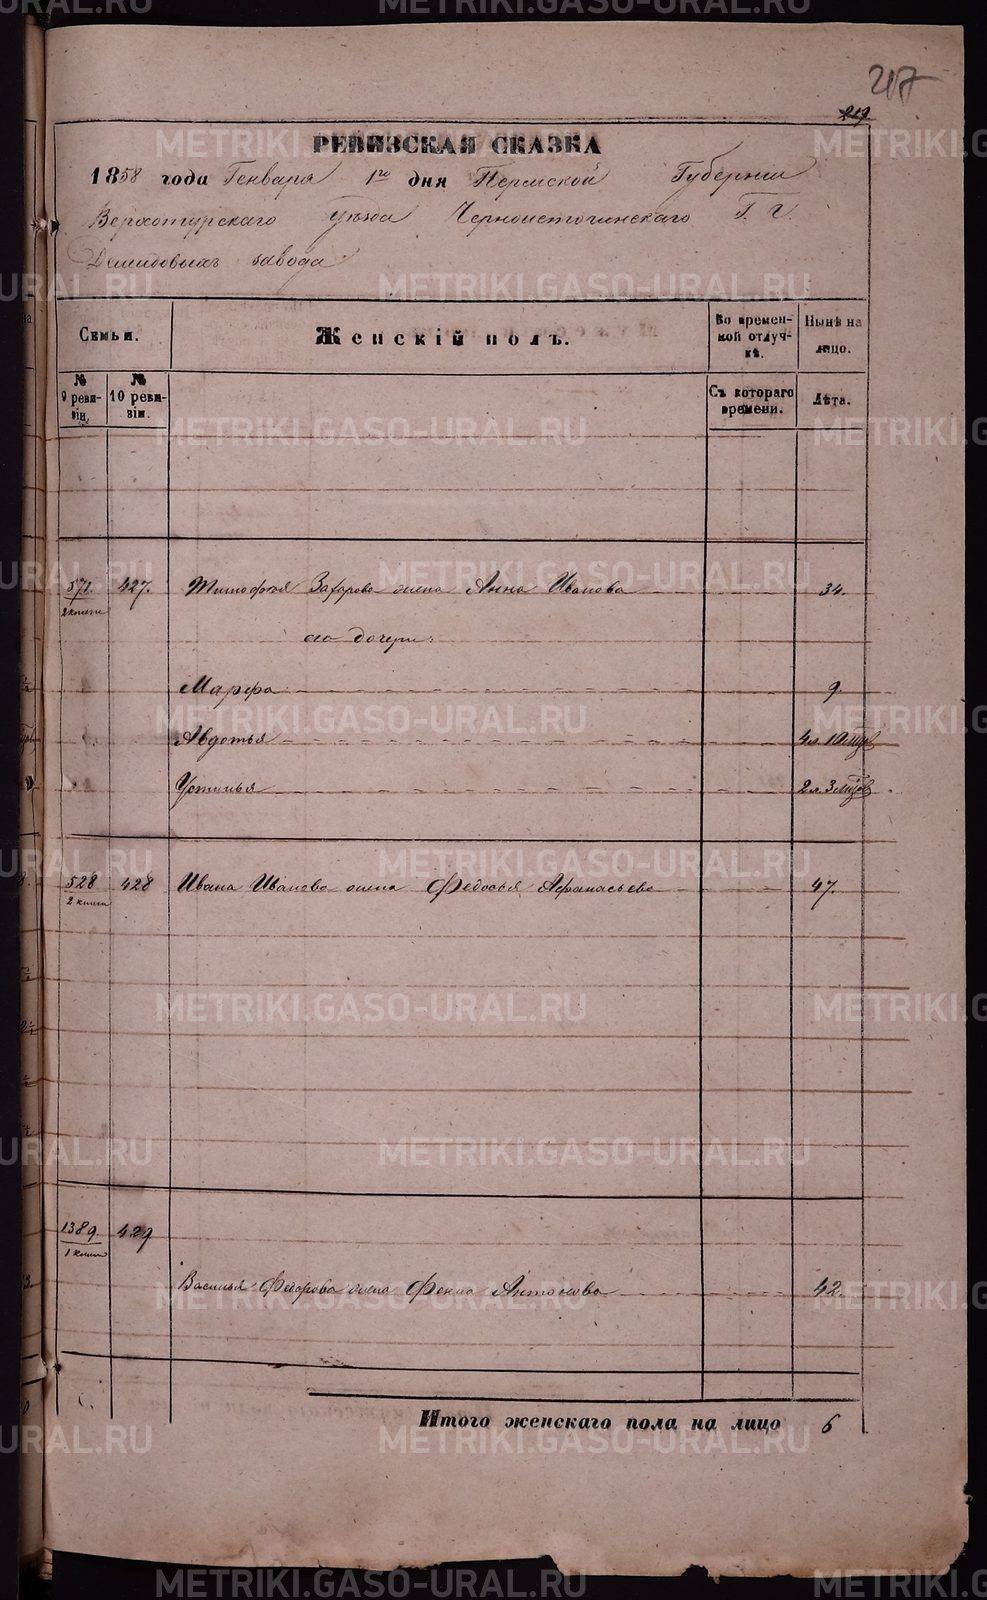 217
219
РЕВИЗСКАЯ СКАЗКА
1858 года Генваря 1го дня Пермской Губернии
Верхотурскаго Уезда Черноисточинскаго Г. Г.
Демидовыхъ завода
Семьи.
Женскій полъ.
Во времен-
ной отлуч-
кѣ.
Нынѣ на
лицо.
№
9 реви-
зіи.
№
10 реви-
зіи.
Съ котораго
времени.
Лѣта.
571. 427. Тимофея Захарова жена Анна Иванова 34.
2 книги
его дочери:
Марфа 9.
Авдотья 4 л. 10 мцов
Устинья 2 л. 3 мцов
528 428 Ивана Иванова жена Федосья Афанасьева 47.
2 книги
1389. 429
1 книги
Василья Федорова жена Фекла Антонова 42.
Итого женскаго пола на лицо 6
METRIKI.GASO-URAL.RU